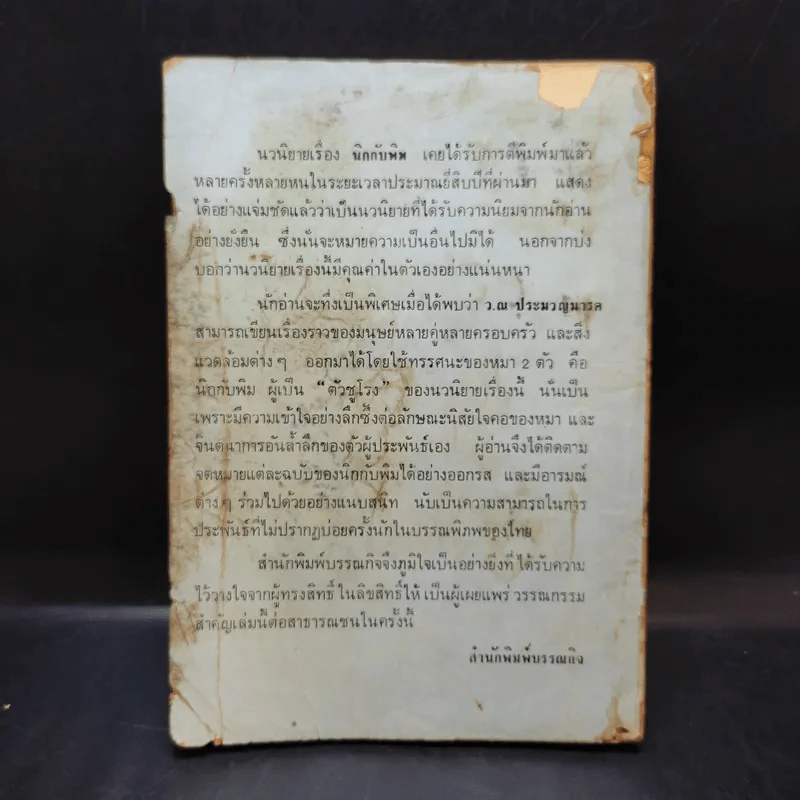 นวนิยายเรื่อง นิกกับพิม เคยได้รับการตีพิมพ์มาแล้ว
หลายครั้งหลายหนในระยะเวลาประมาณยี่สิบปีที่ผ่านมา แสดง
ได้อย่างแจ่มชัดแล้วว่าเป็นนวนิยายที่ได้รับความนิยมจากนักอ่าน
อย่างยั่งยืน ซึ่งนั่นจะหมายความเป็นอื่นไปมิได้ นอกจากบ่ง
บอกว่านวนิยายเรื่องนี้มีคุณค่าในตัวเองอย่างแน่นหนา
นักอ่านจะทึ่งเป็นพิเศษเมื่อได้พบว่า ว.ณ ประมวญมารค
สามารถเขียนเรื่องราวของมนุษย์หลายคู่หลายครอบครัว และสิ่ง
แวดล้อมต่าง ๆ ออกมาได้โดยใช้ทรรศนะของหมา 2 ตัว คือ
นิกกับพิม ผู้เป็น "ตัวชูโรง" ของนวนิยายเรื่องนี้ นั่นเป็น
เพราะมีความเข้าใจอย่างลึกซึ้งต่อลักษณะนิสัยใจคอของหมา และ
จินตนาการอันล้ำลึกของตัวผู้ประพันธ์เอง ผู้อ่านจึงได้ติดตาม
จดหมายแต่ละฉบับของนิกกับพิมได้อย่างออกรส และมีอารมณ์
ต่าง ๆ ร่วมไปด้วยอย่างแนบสนิท นับเป็นความสามารถในการ
ประพันธ์ที่ไม่ปรากฏบ่อยครั้งนักในบรรณพิภพของไทย
สำนักพิมพ์บรรณกิจจึงภูมิใจเป็นอย่างยิ่งที่ ได้รับความ
ไว้วางใจจากผู้ทรงสิทธิ์ ในลิขสิทธิ์ให้ เป็นผู้เผยแพร่ วรรณกรรม
สำคัญเล่มนี้ต่อสาธารณชนในครั้งนี้
สำนักพิมพ์บรรณกิจ